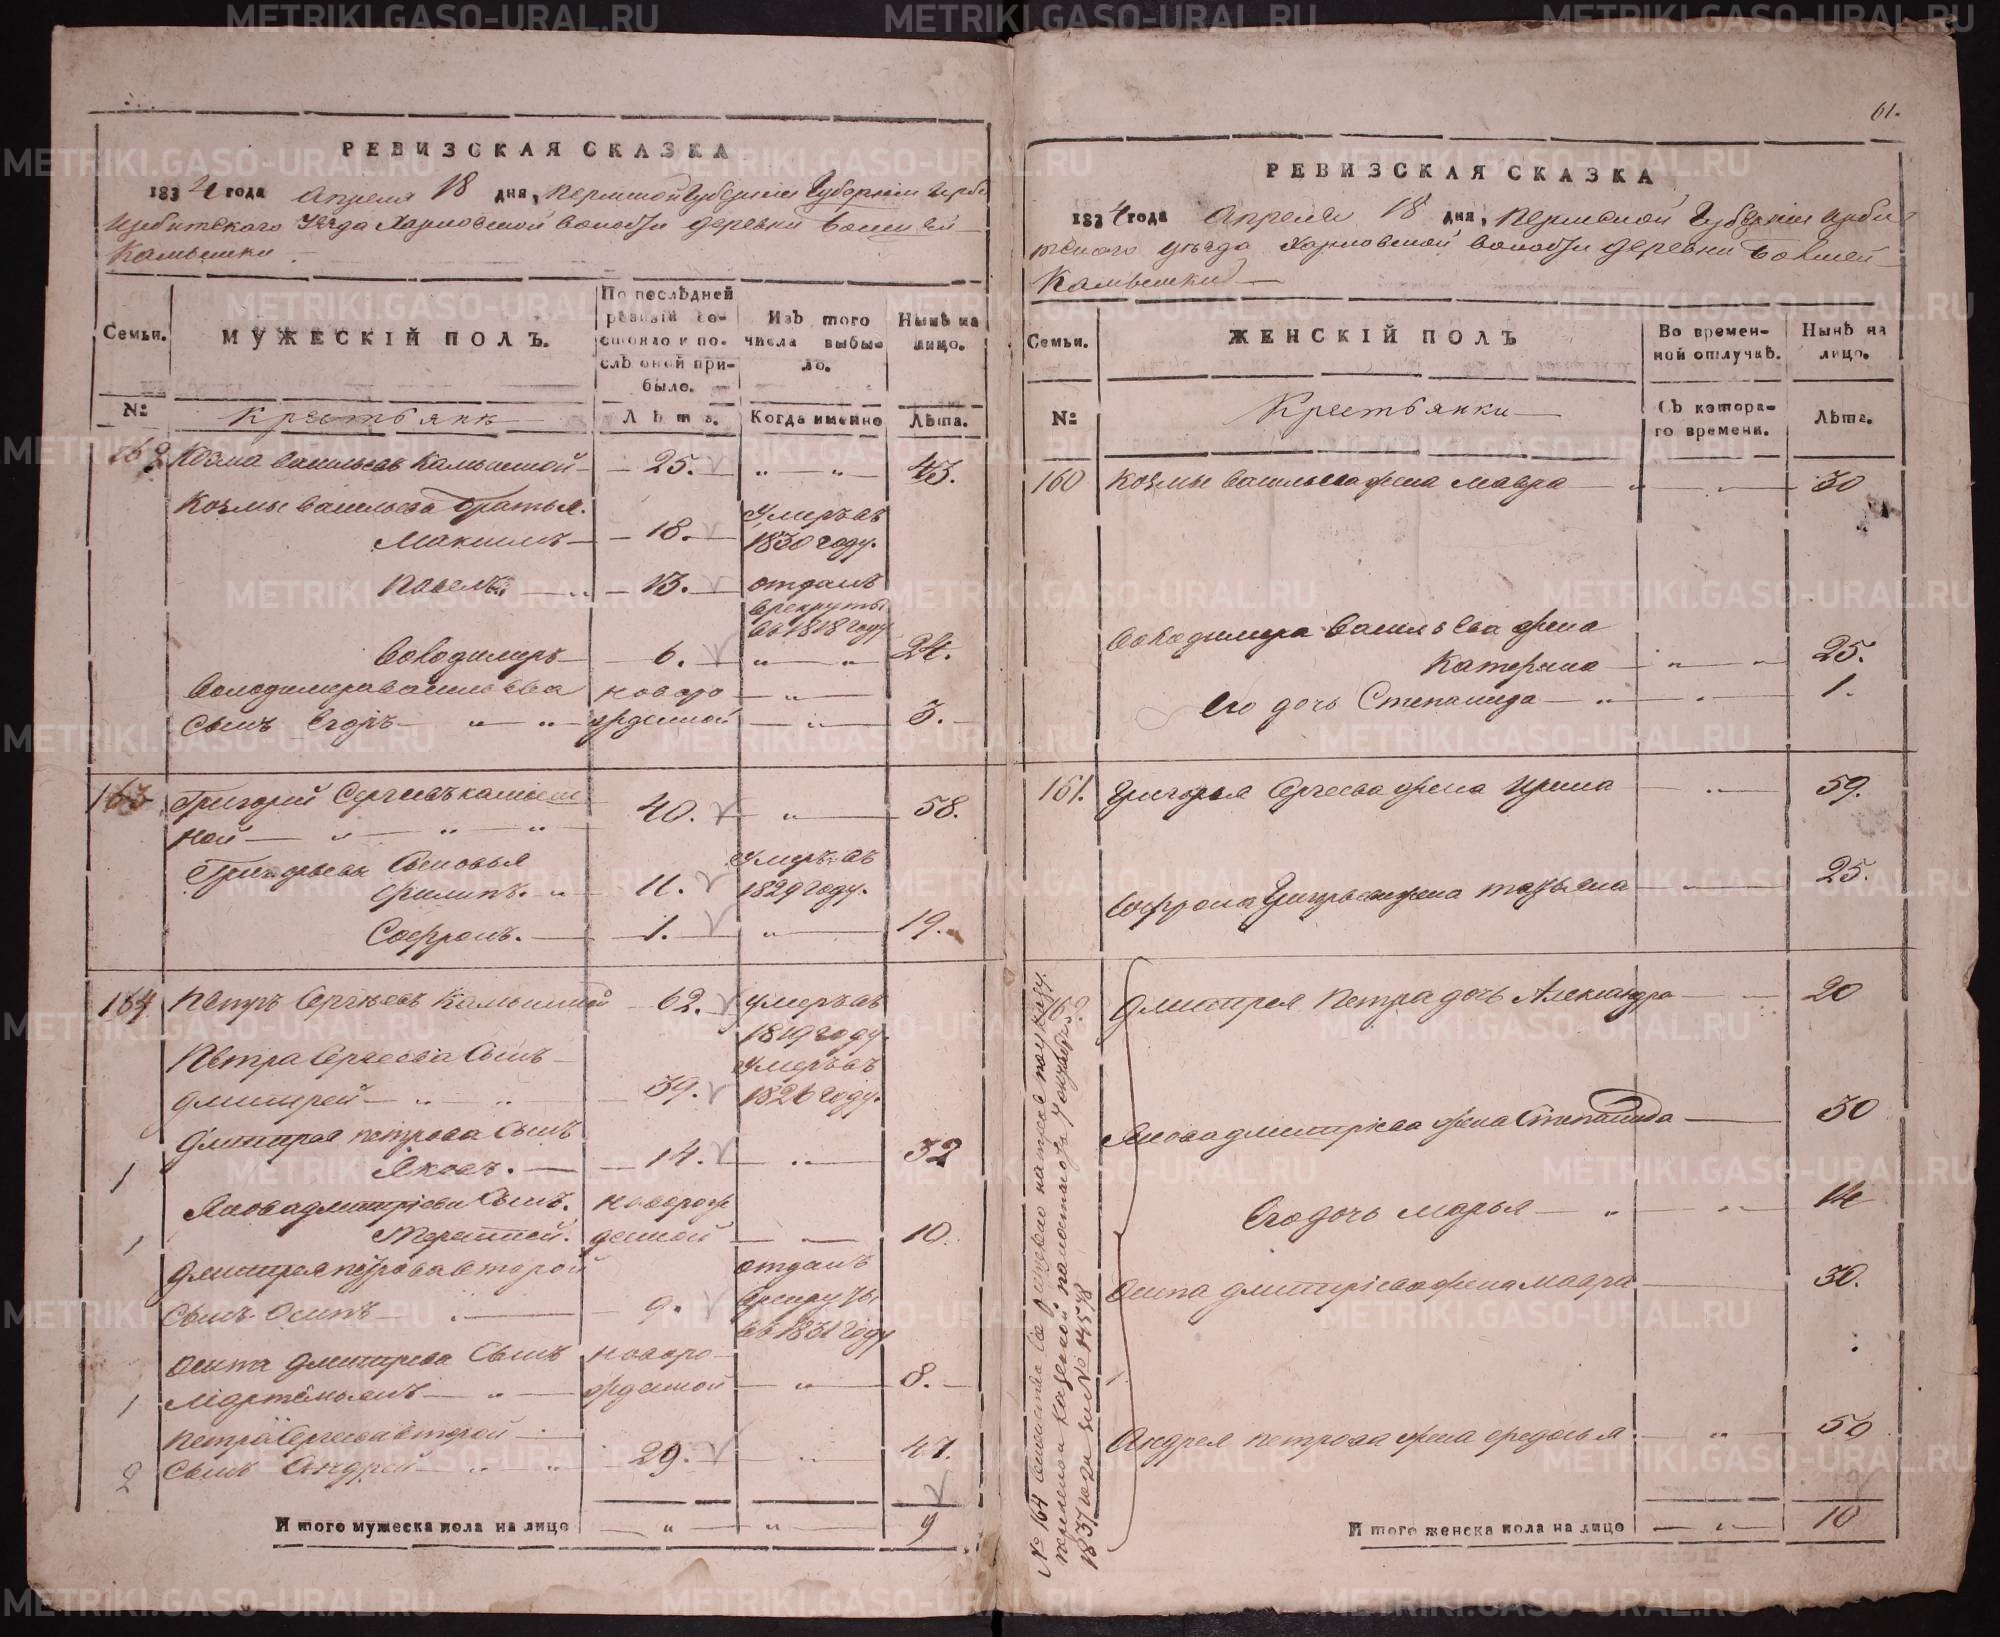 61.
РЕВИЗСКАЯ СКАЗКА
1834 года Апреля 18 дня, Пермской Губернiи Губернiи Ирби
Ирбитскаго Уезда Харловской волости деревни Бол​шей
Камышки
Семьи.
МУЖЕСКІЙ ПОЛЪ.
По послѣдней ревизіи состояло и послѣ оной прибыло.
Изъ того числа выбыло.
Нынѣ на лицо.
№
Крестьяне
Лѣта.
Когда именно
Лѣта.
162 Козма Васильевъ Камышной 25. 43.
Козмы Васильева братья.
Максимъ 18. умеръ въ 1830 году.
13. отданъ в рекруты въ 1818 году
Володимеръ 6. 24.
Володимера Васильева новоро
сынъ Егоръ жденной 3.
163 Григорей Сергеевъ камыш
ной 40. 58.
Григорьевы сыновья
Филипъ. 11. умеръ въ 1829 году.
Софронъ. 1. 19.
164 Петръ Сергеевъ Камышной 62. умеръ въ 1819 году
Петра Сергеева сынъ
Дмитрей 39. умеръ въ 1826 году.
Дмитрея петрова сынъ
1 Яковъ. 14. 32
Якова дмитрiева сынъ. новорож
1 денной 10.
Дмитрея петрова второй
сынъ Осипъ 9. отданъ в рекруты въ 1831 году
Осипа Дмитрева сынъ новоро
1 Мартемьянъ жденной 8.
Петра Сергеева второй
2 сынъ Андрей 29. 47.
Итого мужеска пола на лицо 9
РЕВИЗСКАЯ СКАЗКА
1834 года Апреля 18 дня, Пермской Губернiи Ирби
тского уѣзда Харловской волости деревни Болшей
Камышки
Семьи.
ЖЕНСКІЙ ПОЛЪ
Во временной отлучкѣ.
Нынѣ на лицо.
№
Крестьянки
Съ котораго времени.
Лѣта.
160 Козмы Васильева жена Мавра 30
Володимера Васильева жена
Катерина 25.
Его дочь Степанида 1.
161. Григорья Сергеева жена Ирина 59.
Софрона Григорьева жена Татьяна 25.
Дмитрея Петра дочь Александра 20
Якова дмитрiева жена Степанида 30
Его дочь Марья 14
Осипа дмитрiева жена Мавра 30.
Андрея петрова жена Федосья 50
Итого женска пола на лицо 10
№ 164
казенной палаты
1837 года за № 14578